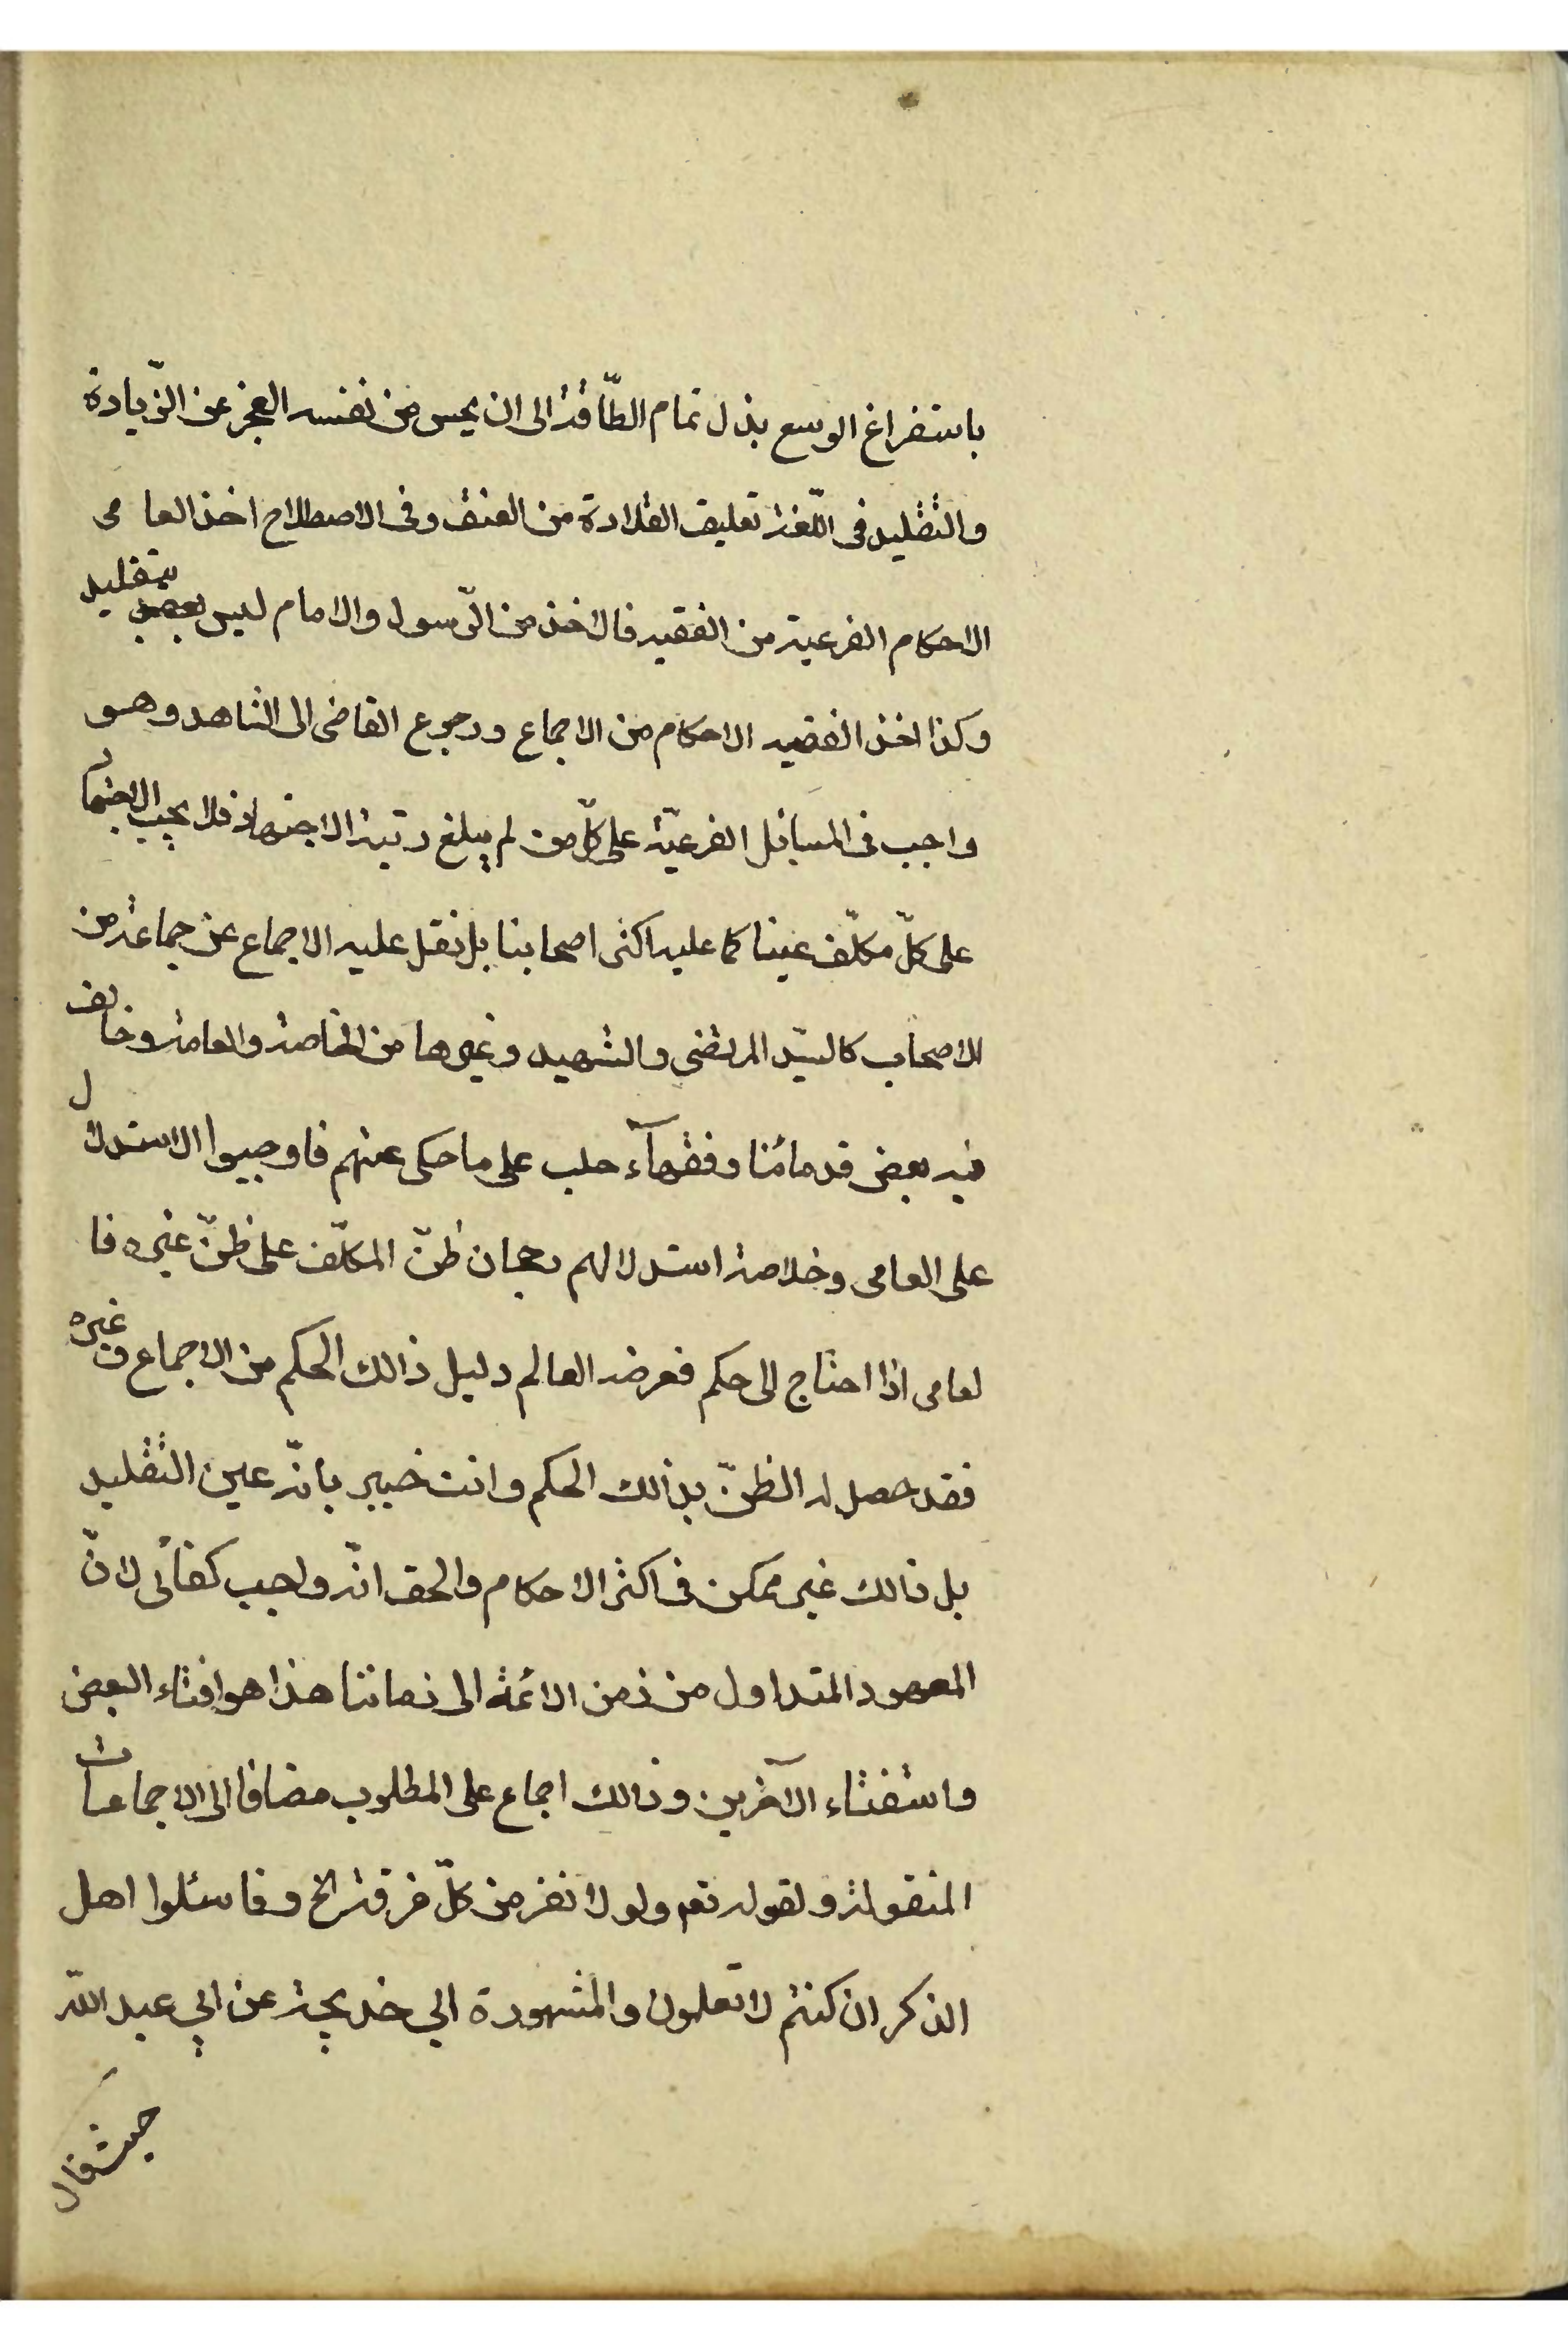 باستفراغ الوسع بذل تمام الطّاقة الى ان يحس من نفسه العجز عن الزّيادة
والتقليد فى اللّغة تعليق القلادة من العنق وفى الاصطلاح اخذ العامى
الاحكام الفرعية من الفقيه فالاخذ من الرّسول والامام ليس بتقليد
وكذا اخذ الفقيه الاحكام من الاجماع ورجوع القاضى الى الشاهد وهو
واجب فى المسائل الفرعيّة على كلّ من لم يبلغ رتبة الاجتهاد فلا يجب الاجتهاد
على كلّ مكلّف عينا كما عليه اكثر اصحابنا بل نقل عليه الاجماع عن جماعة من
الاصحاب كالسيّد المرتضى والشهيد وغيرها من الخاصة والعامة وخالف
فيه بعض قدمائنا وفقهآء حلب على ما حكى عنهم فاوجبوا الاستدلال
على العامى وخلاصة استدلالهم رجحان ظنّ المكلّف على ظنّ غيره فا
لعامى اذا احتاج الى حكم فعرضه العالم دليل ذالك الحكم من الاجماع و غيره
فقد حصل له الظنّ بذالك الحكم وانت خبير بانّه عين التقليد
بل ذالك غير ممكن فى اكثر الاحكام والحق انّه واجب كفائى لانّ
المعهود المتداول من زمن الائمة الى زماننا هذا هو افتاء البعض
واستفتاء الآخرين وذالك اجماع على المطلوب مضافا الى الاجماعات
المنقولة ولقوله تعم ولولا نفر من كلّ فرقة الخ وفاسئلوا اهل
الذكر ان كنتم لا تعلمون والمشهورة ابي خديجة عن ابي عبد اللّه